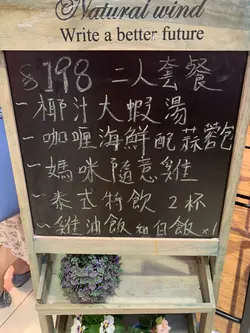 Natural wind
Write a better future
$198 二人套餐
- 椰汁大蝦湯
- 咖喱海鮮配蒜蓉包
- 媽咪隨意雞
- 泰式特飲 2杯
- 雞油飯和白飯 x1